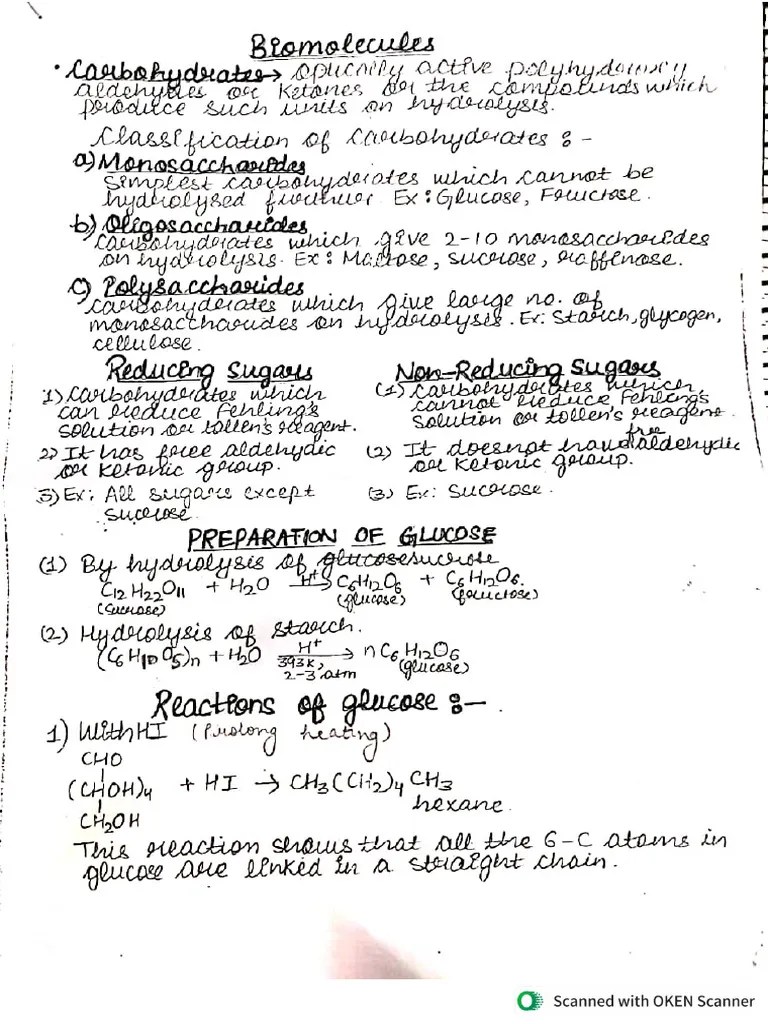 Biomolecules
• Carbohydrates → optically active polyhydroxy
aldehydes or ketones or the compounds which
produce such units on hydrolysis.
Classification of Carbohydrates :-
a) Monosaccharides
Simplest carbohydrates which cannot be
hydrolysed further. Ex: Glucose, Fructose.
b) Oligosaccharides
Carbohydrates which give 2-10 monosaccharides
on hydrolysis. Ex: Maltose, sucrose, raffinose.
c) Polysaccharides
Carbohydrates which give large no. of
monosaccharides on hydrolysis. Ex: Starch, glycogen,
cellulose.
Reducing Sugars
1) Carbohydrates which
can reduce Fehling's
solution or tollen's reagent.
2) It has free aldehydic
or ketonic group.
3) Ex: All sugars except
sucrose.
Non-Reducing Sugars
(1) Carbohydrates which
cannot reduce Fehling's
solution or tollen's reagent.
(2) It doesnot have free aldehydic
or ketonic group.
(3) Ex: Sucrose.
PREPARATION OF GLUCOSE
(1) By hydrolysis of glucose sucrose
C12H22O11 + H2O H+→ C6H12O6 + C6H12O6.
(sucrose) (glucose) (fructose)
(2) Hydrolysis of starch.
(C6H10O5)n + H2O H+→ nC6H12O6
393K, (glucose)
2-3 atm
Reactions of glucose :-
1) With HI (Prolong heating)
CHO
(CHOH)4 + HI → CH3(CH2)4CH3
hexane
CH2OH
This reaction shows that all the 6-C atoms in
glucose are linked in a straight chain.
Scanned with OKEN Scanner